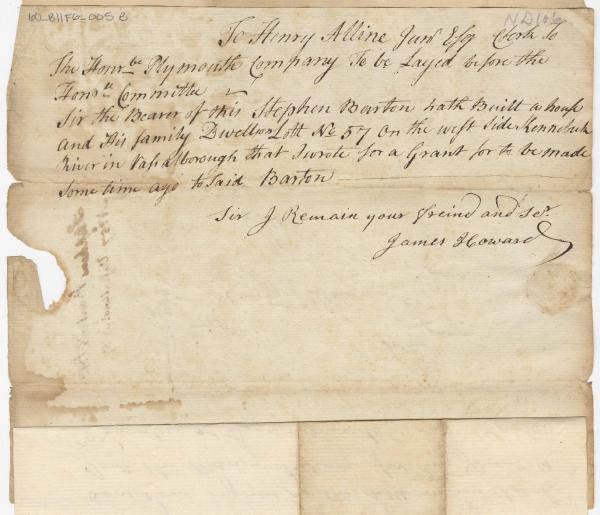 10_B11F6_005 B
ND106
To Henry Alline Junr Esqr Clerk to
The Honrble Plymouth Company To be Layed before the
Honrle Committee
Sir the Bearer of this Stephen Barton hath Built a house
and His family Dwells on Lott No 57 on the west side Kennebeck
River in Vassalborough that I wrote for a Grant for to be made
some time ago to Said Barton
Sir I Remain your freind and Ser.
James Howard